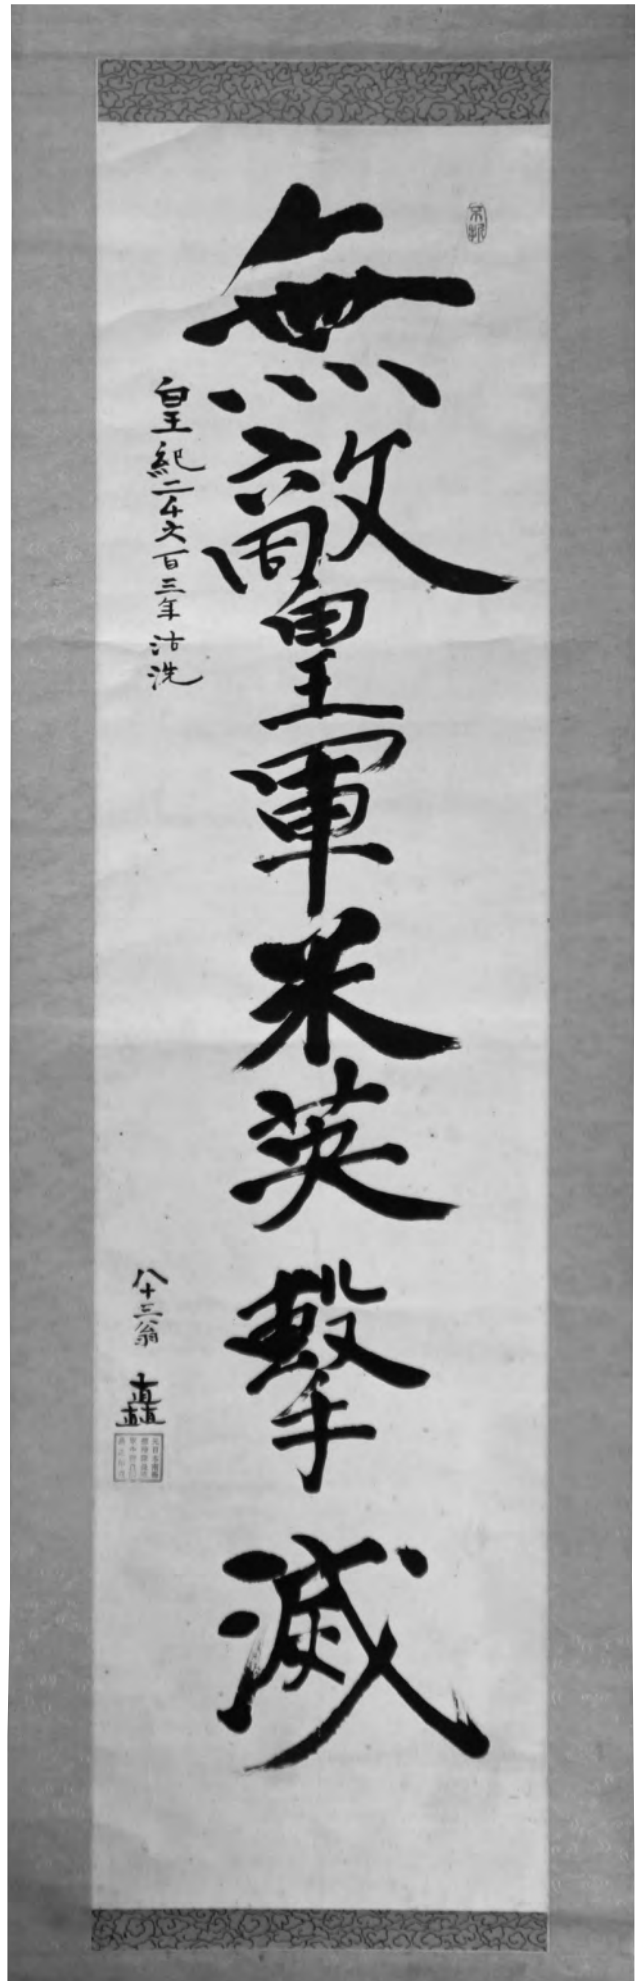 無敵皇軍米英撃滅
皇紀二千六百三年沽洗
八十三翁